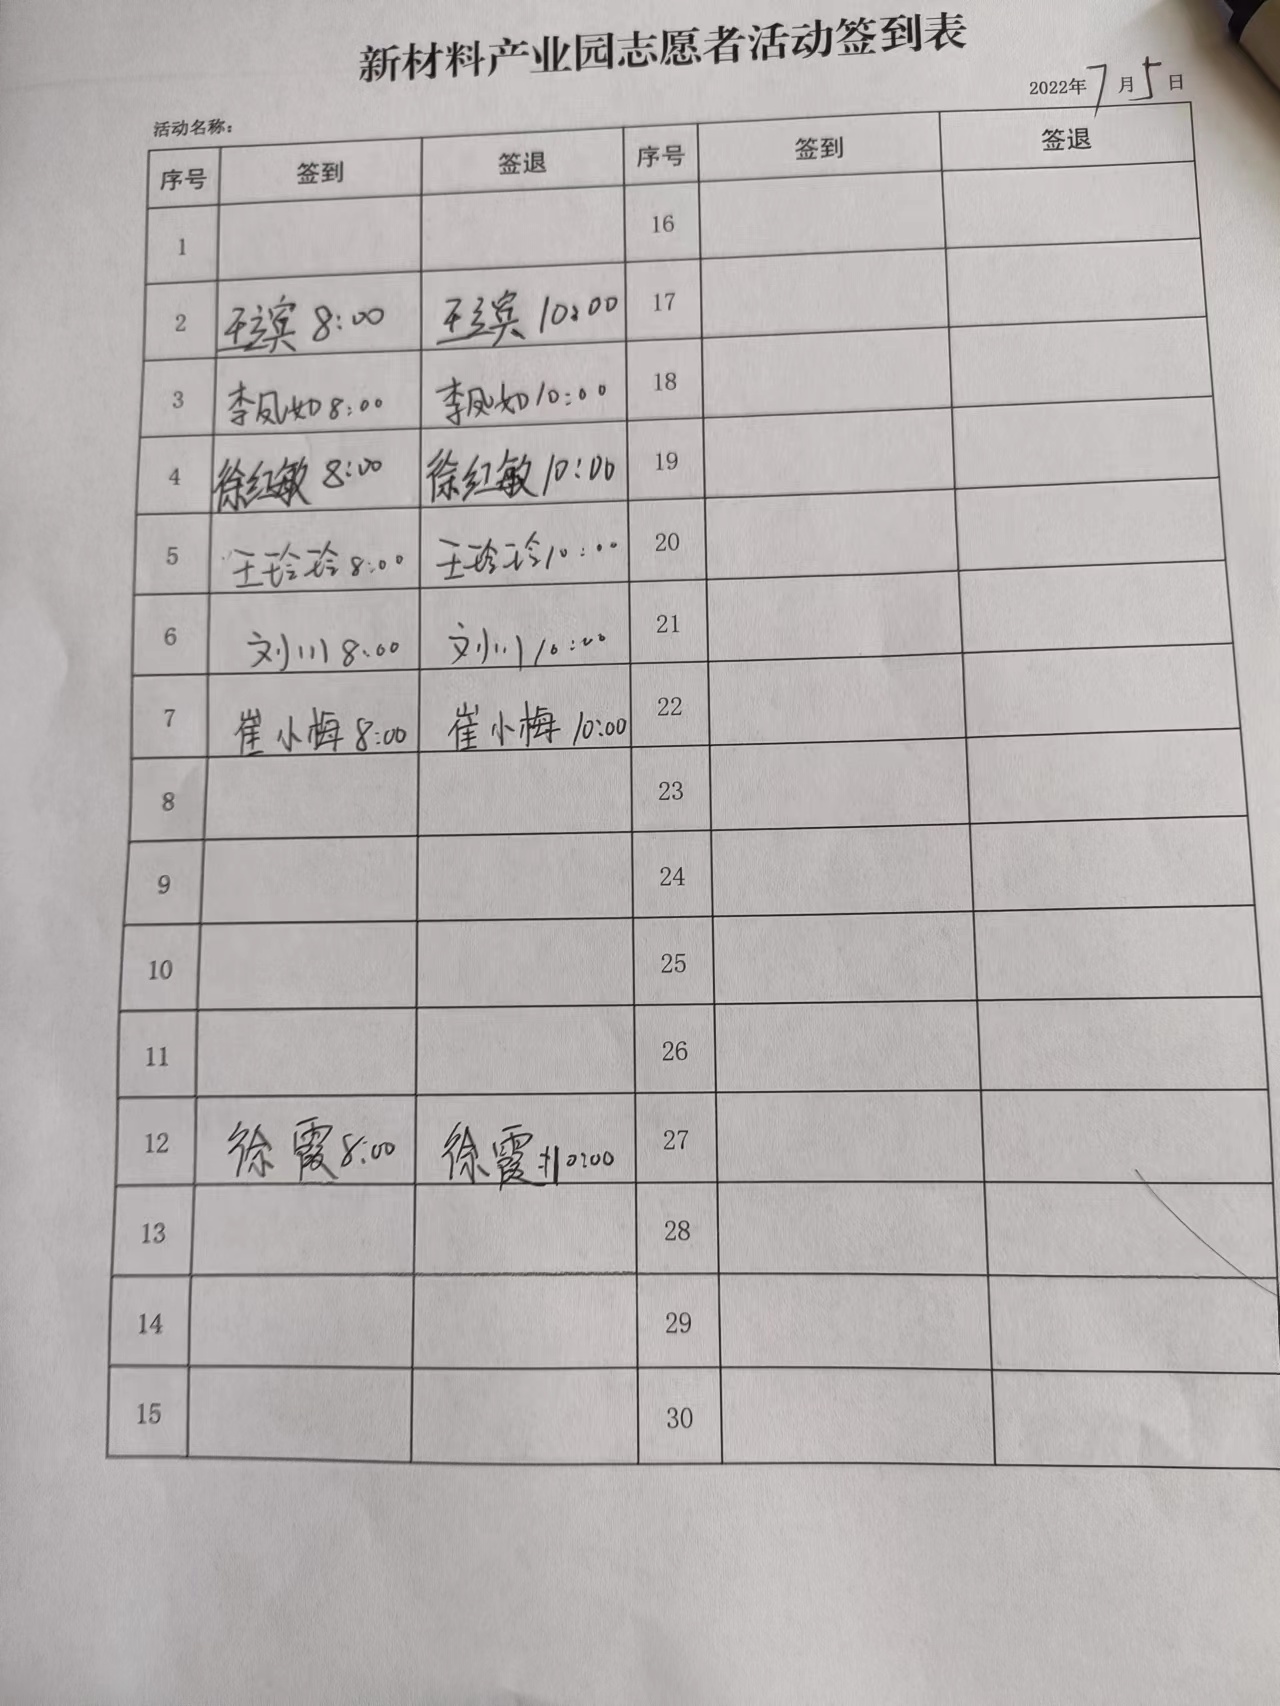 新材料产业园志愿者活动签到表
2022年7月5日
活动名称:
序号 签到 签退 序号 签到 签退
1 16
2 8:00 10:00 17
3 李凤如 8:00 李凤如 10:00 18
4 徐红敏 8:00 徐红敏 10:00 19
5 王玲玲 8:00 王玲玲 10:00 20
6 刘小川 8:00 刘小川 10:00 21
7 崔小梅 8:00 崔小梅 10:00 22
8 23
9 24
10 25
11 26
12 徐霞 8:00 徐霞 10:00 27
13 28
14 29
15 30